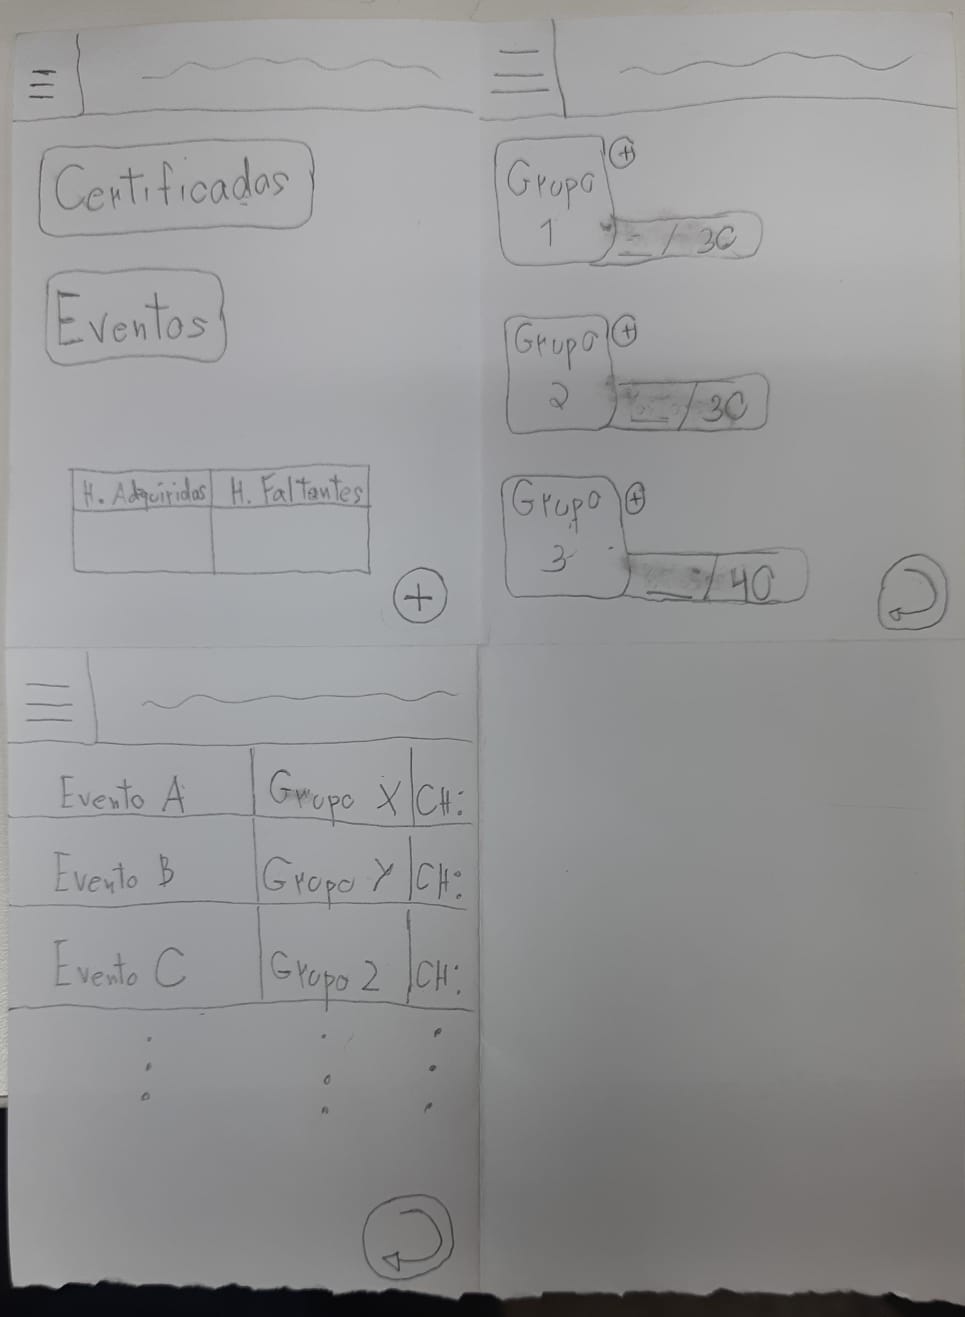 Certificados
Eventos
H. Adquiridas H. Faltantes
+
Grupo
1
+
_ / 30
Grupo
2
+
_ / 30
Grupo
3
+
_ / 40
Evento A Grupo X CH:
Evento B Grupo Y CH:
Evento C Grupo Z CH: